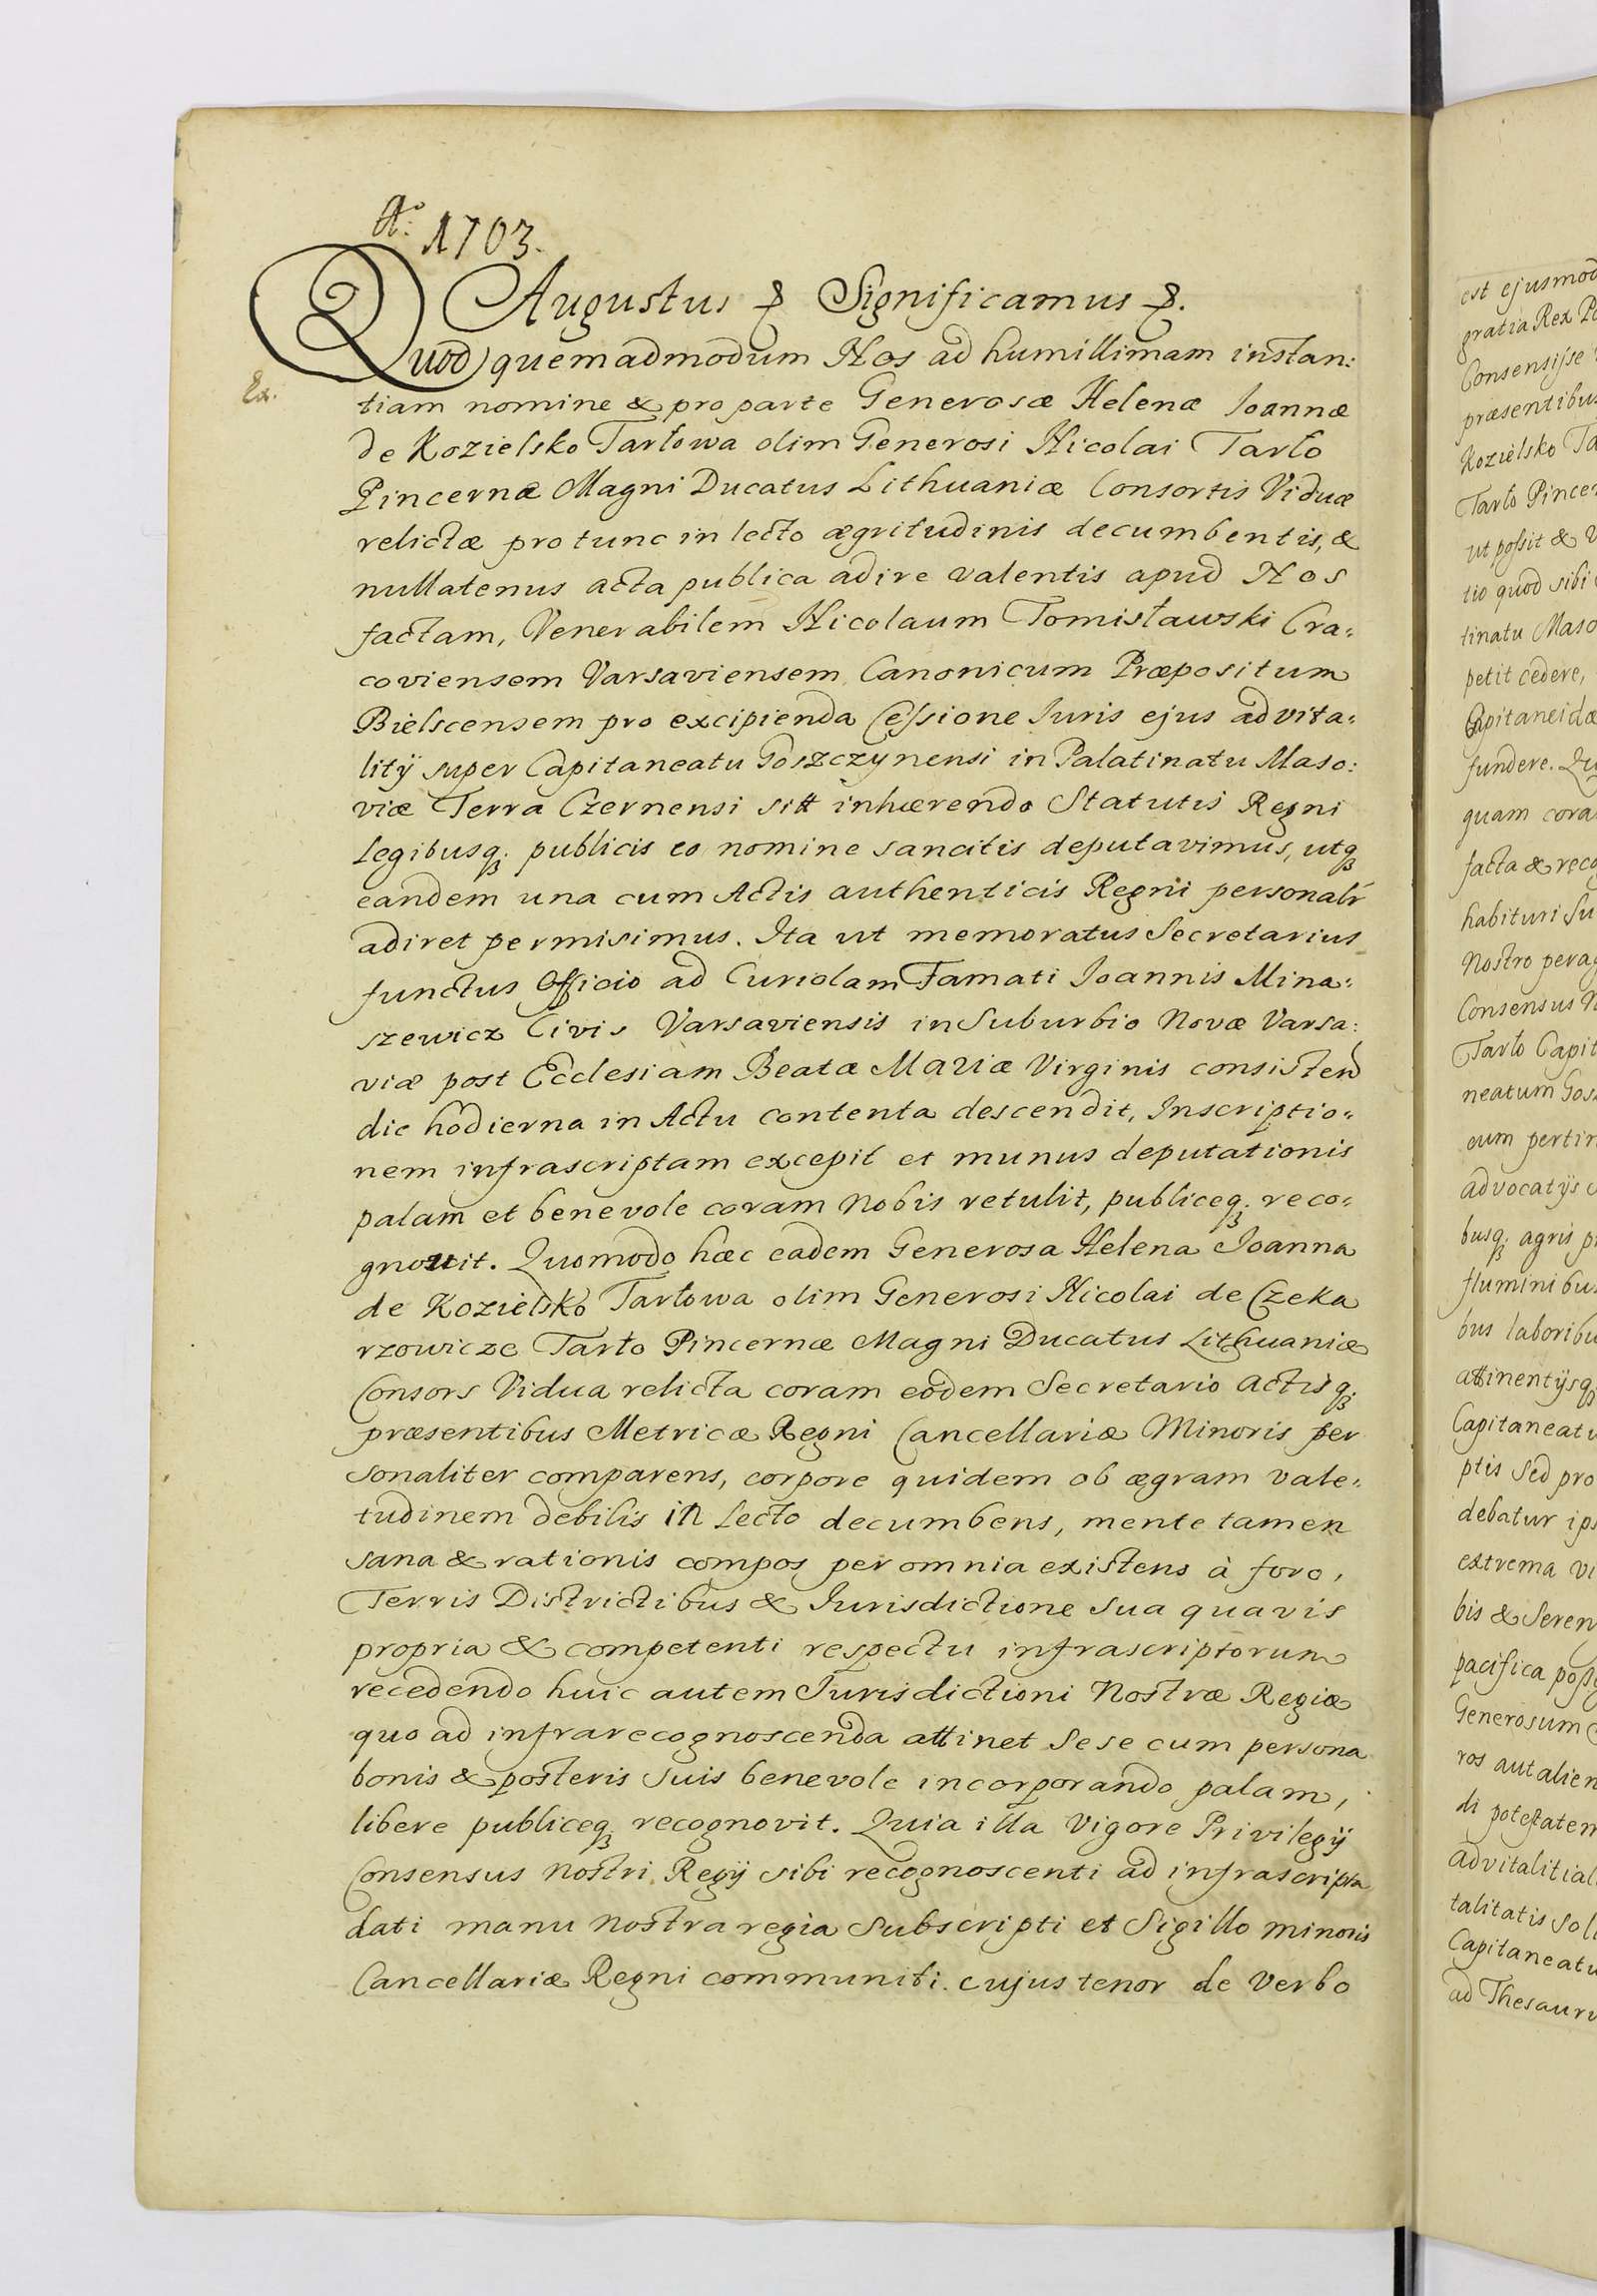 Aº: 1703.
Augustus &. Significamus &.
Quod quemadmodum Nos ad humillimam instan:
Ex.
tiam nomine & pro parte Generosæ Helenæ Ioannæ
de Kozielsko Tarłowa olim Generosi Nicolai Tarło
Pincernæ Magni Ducatus Lithuaniæ Consortis Viduæ
relictæ pro tunc in lecto ægritudinis decumbentis, &
nullatenus acta publica adire valentis apud Nos
factam, Venerabilem Nicolaum Tomisławski Cra:
coviensem Varsaviensem Canonicum Præpositum
Bielscensem pro excipienda Cessione Iuris ejus advita:
litÿ super Capitaneatu Goszczynensi in Palatinatu Maso:
viæ Terra Czernensi sitt inhærendo Statutis Regni
Legibusq; publicis eo nomine sancitis deputavimus, utq;
eandem una cum Actis authenticis Regni personalr
adiret permisimus. Ita ut memoratus Secretarius
functus Officio ad Curiolam Famati Ioannis Mina:
szewicz Civis Varsaviensis in Suburbio Novæ Varsa:
viæ post Ecclesiam Beatæ Mariæ Virginis consisten
die hodierna in Actu contenta descendit, Inscriptio:
nem infrascriptam excepit et munus deputationis
palam et benevole coram Nobis retulit, publiceq; reco:
gnovit. Quomodo hæc eadem Generosa Helena Ioanna
de Kozielsko Tarłowa olim Generosi Nicolai de Czeka
rzowicze Tarło Pincernæ Magni Ducatus Lithuaniæ
Consors Vidua relicta coram eodem Secretario Actisq;
præsentibus Metricæ Regni Cancellariæ Minoris per
sonaliter comparens, corpore quidem ob ægram vale:
tudinem debilis in Lecto decumbens, mente tamen
sana & rationis compos per omnia existens à foro,
Terris Districtibus & Iurisdictione sua quavis
propria & competenti respectu infrascriptorum
recedendo huic autem Iurisdictioni Nostræ Regiæ
quo ad infrarecognoscenda attinet sese cum persona
bonis & posteris suis benevole incorporando palam,
libere publiceq; recognovit. Quia illa Vigore Privilegÿ
Consensus Nostri Regÿ sibi recognoscenti ad infrascripta
dati manu nostra regia Subscripti et Sigillo minoris
Cancellariæ Regni communiti. cujus tenor de Verbo
est ejusmod
gratia Rex Po
Consensisse
præsentibus
Kozielsko Ta
Tarło Pincer
ut possit & V
tio quod sibi
tinatu Maso
petit cedere,
Capitaneidæ
fundere. Qu
quam cora
facta & reco
habituri Su
Nostro perag
Consensus N
Tarło Capit
neatum Gosz
cum pertin
advocatÿs
busq; agris p
fluminibus
bus laboribu
attinentÿsq;
Capitaneatu
ptis sed pro
debatur ips
extrema vi
bis & Seren
pacifica poss
Generosum
ros aut alien
di potestatem
advitalitial
talitatis sol
Capitaneatu
ad Thesauru